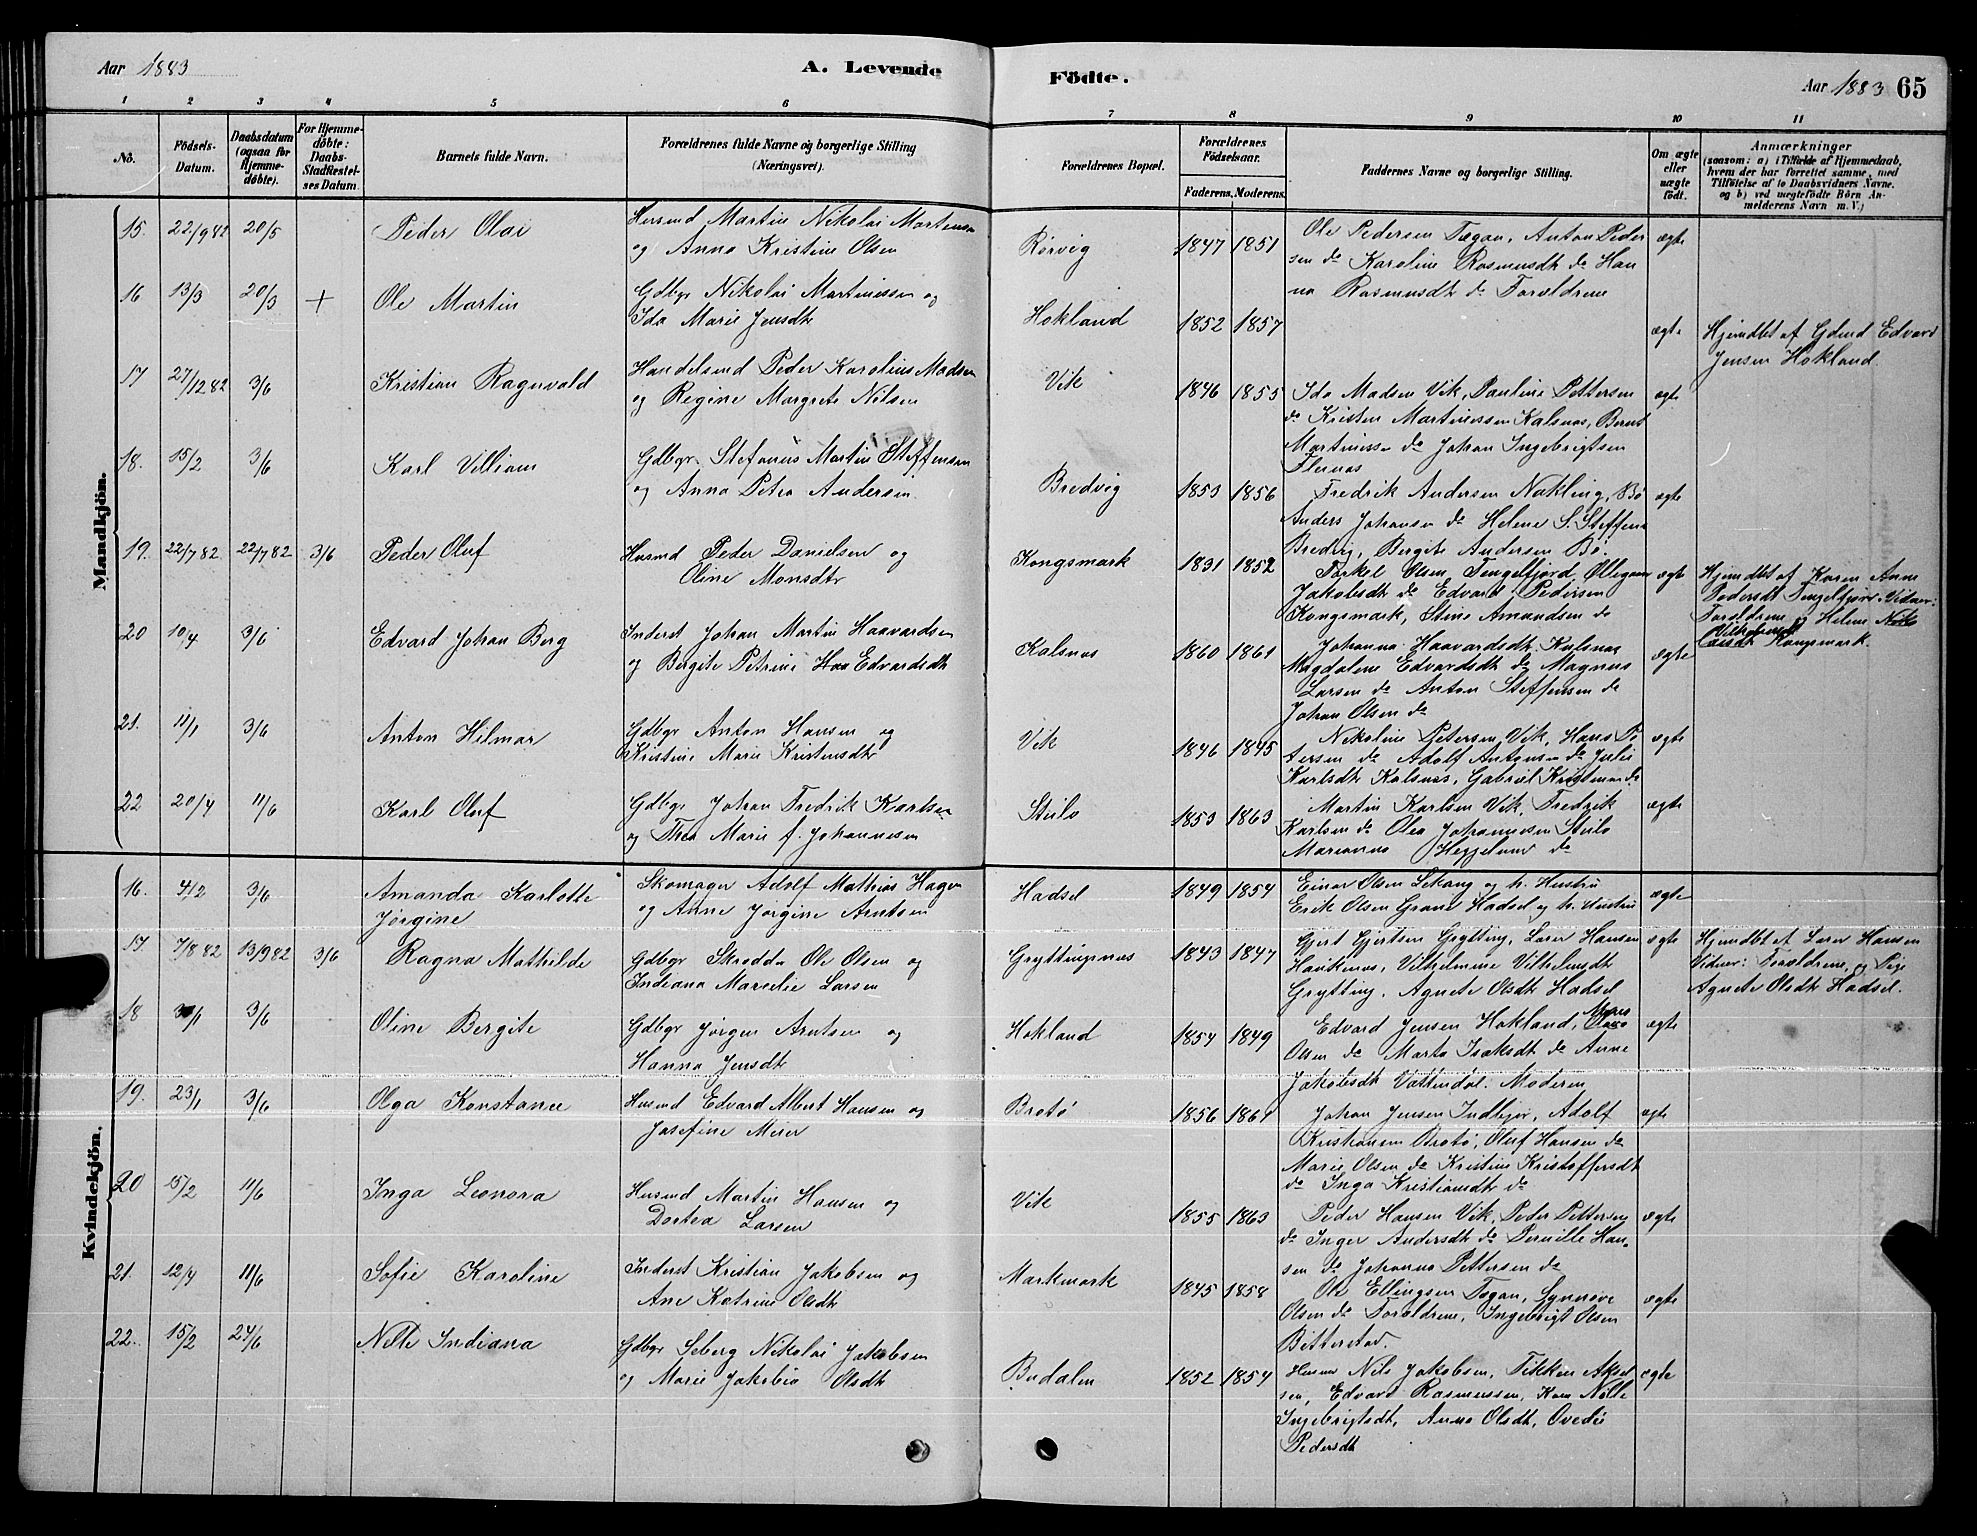 Aar 1883
A. Levende
Födte.
Aar 1883 65
1 2 3 4 5 6 7 8 9 10 11
No.
Födsels-
Datum.
Daabsdatum
(ogsaa for
Hjemme-
döbte).
For Hjemme-
döbte:
Daabs-
Stadfæstel-
ses Datum.
Barnets fulde Navn.
Forældrenes fulde Navne og borgerlige Stilling
(Næringsvei).
Forældrenes Bopæl.
Forældrenes
Födselsaar.
Faderens. Moderens.
Faddernes Navne og borgerlige Stilling.
Om ægte
eller
uægte
födt.
Anmærkninger
(saasom: a) i Tilfælde af Hjemmedaab,
hvem der har forrettet samme, med
Tilföielse af to Daabsvidners Navne.
og b) ved uegtefödte Börn An-
melderens Navn m. V.)
Mandkjön.
15. 22/9 82 20/5 Peder Olai
Husmd Martin Nikolai Martinsen
og Anna Kristine Olsen
Rørvig 1847 1851
Ole Pedersen Tægan, Anton Peder
sen do Karoline Rasmusdt do Han
na Rasmusdt do Forældrene
ægte
16 13/3 20/3 + Ole Martin
Gdbgr Nikolai Martinissen og
Ida Marie Jensdtr
Hokland 1852 1857 ægte
Hjemdbt af Gdmd Edvard
Jensen Hokland.
17 27/12 82 3/6 Kristian Ragnvald
Handelsmd Peder Karolius Madsen
og Regine Margrete Nilsen
Vik 1846 1855
Ida Madsen Vik, Pauline Pettersen
do Kristen Martinissen Kalsnes, Bernt
Martiniss. do Johan Ingebrigtsen
Flernes
ægte
18. 15/2 3/6 Karl Villiam
Gdbgr. Stefanus Martin Steffensen
og Anna Petra Andersen.
Bredvig 1853 1856
Fredrik Andersen Nokling, Bö
Anders Johansen do Helene S. Steffens
Bredvig, Bergite Andersen Bö.
ægte
19. 22/7 82 22/7 82 3/6 Peder Oluf
Husmd Peder Danielsen og
Oline Monsdtr
Kongsmark 1831 1852
Torkel Olsen Fengelfjord, Ollegaar
Jakobsdt do Edvard Pedersen
Kongsmark, Stine Amundsen do
ægte
Hjemdbt af Karen Anna
Pedersdt Fengelfjord. Vidner:
Forældrene og Helene
Kongsmark.
20 10/4 3/6 Edvard Johan Berg
Inderst Johan Martin Haavardsen
og Bergite Petrine Edvardsdt
Kalsnes 1860 1861
Johanna Haavardsdt. Kalsnes
Magdalene Edvardsdt do Magnus
Larsen do Anton Steffensen do
Johan Olsen do
ægte
21. 11/1 3/6 Anton Hilmar
Gdbgr Anton Hansen og
Kristine Marie Kristensdtr
Vik 1846 1845
Nikoline Petersen Vik, Hans Pe
tersen do Adolf Antonsen do Julie
Karlsdtr Kalsnes, Gabriel Kristensen do
ægte
22 20/4 11/6 Karl Oluf
Gdbgr Johan Fredrik Karlsen
og Thea Marie f. Johannesen
Steilo 1853 1863
Martin Karlsen Vik, Fredrik
Karlsen do Olea Johannesen Steilo
Marianna Heggelund do
ægte
Kvindekjön.
16. 4/2 3/6 Amanda Karlotte
Jørgine
Skomager Adolf Mathias Hagen
og Anne Jørgine Arntsen
Hadsel 1849 1854
Einar Olsen Lekang og h. Hustru
Erik Olsen Grane Hadsel og h. Hustru
ægte
17 7/8 82 13/9 82 3/6 Ragna Mathilde
Gdbgr Skrædder Ole Olsen og
Indiana Marselie Larsen
Gryttingnes 1843 1847
Gjert Gjertsen Grytting, Lærer Hansen
Haukenes, Vilhelmine Vilhelmsdt
Grytting, Agnete Olsdt Hadsel
ægte
Hjemdbt af Lærer Hansen
Vidner: Forældrene, og Pige
Agnete Olsdt Hadsel.
18 3/6 Oline Bergite
Gdbgr Jørgen Arntsen og
Hanna Jensdt
Hokland 1854 1849
Edvard Jensen Hokland,
Olsen do Marta Isaksdt do Anne
Jakobsdt Vattendal. Moderen
ægte
19. 23/1 3/6 Olga Konstance
Husmd Edvard Albert Hansen og
Josefine Meier
Brotö 1856 1861
Johan Jensen Indbjor, Adolf
Kristiansen Brotö, Oluf Hansen do
Marie Olsen do Kristine Kristoffersdt
do Inga Kristiansdtr do
ægte
20 15/2 11/6 Inga Leonora
Husmd Martin Hansen og
Dortea Larsen
Vik 1855 1863
Peder Hansen Vik, Peder Pettersen
do Inger Andersdt do Pernille Han-
sen do Johanna Pettersen do
ægte
21. 12/4 11/6 Sofie Karoline
Inderst Kristian Jakobsen og
Ane Katrine Olsdtr
Markmark 1845 1858
Ole Ellingsen Tøgan, Synnøve
Olsen do Forældrene, Ingebrigt Olsen
Bitterstad.
ægte
22. 15/2 24/6 Nelle Indiana
Gdbgr Seberg Nikolai Jakobsen
og Marie Jakobia Olsdtr
Budalen 1852 1854
Husmd Nils Jakobsen, Tikken Aksel
sen, Edvard Rasmussen, Kone Nelle
Ingebrigtsdt, Anna Olsdt, Ovedie
Pedersdt
ægte